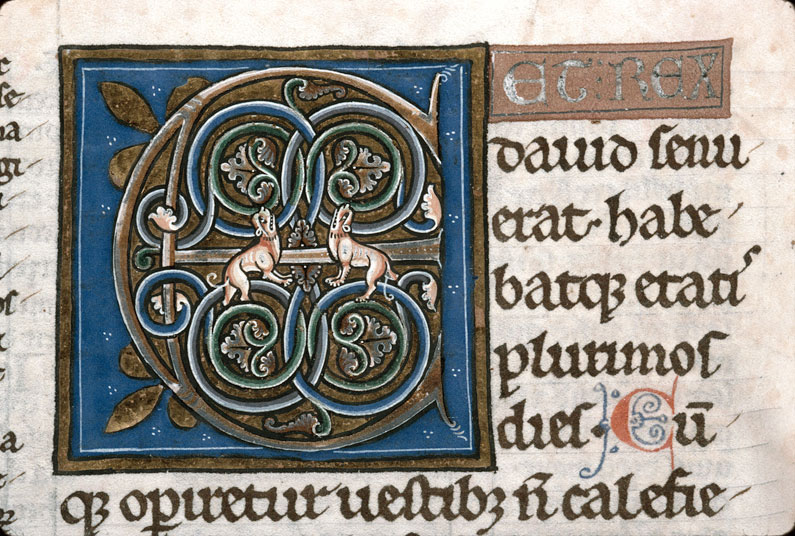 ET: REX
dauid senu
erat· habe
batq; etatis
plurimos
dies· Cū
q; operiretur uestib; n̄ calefie